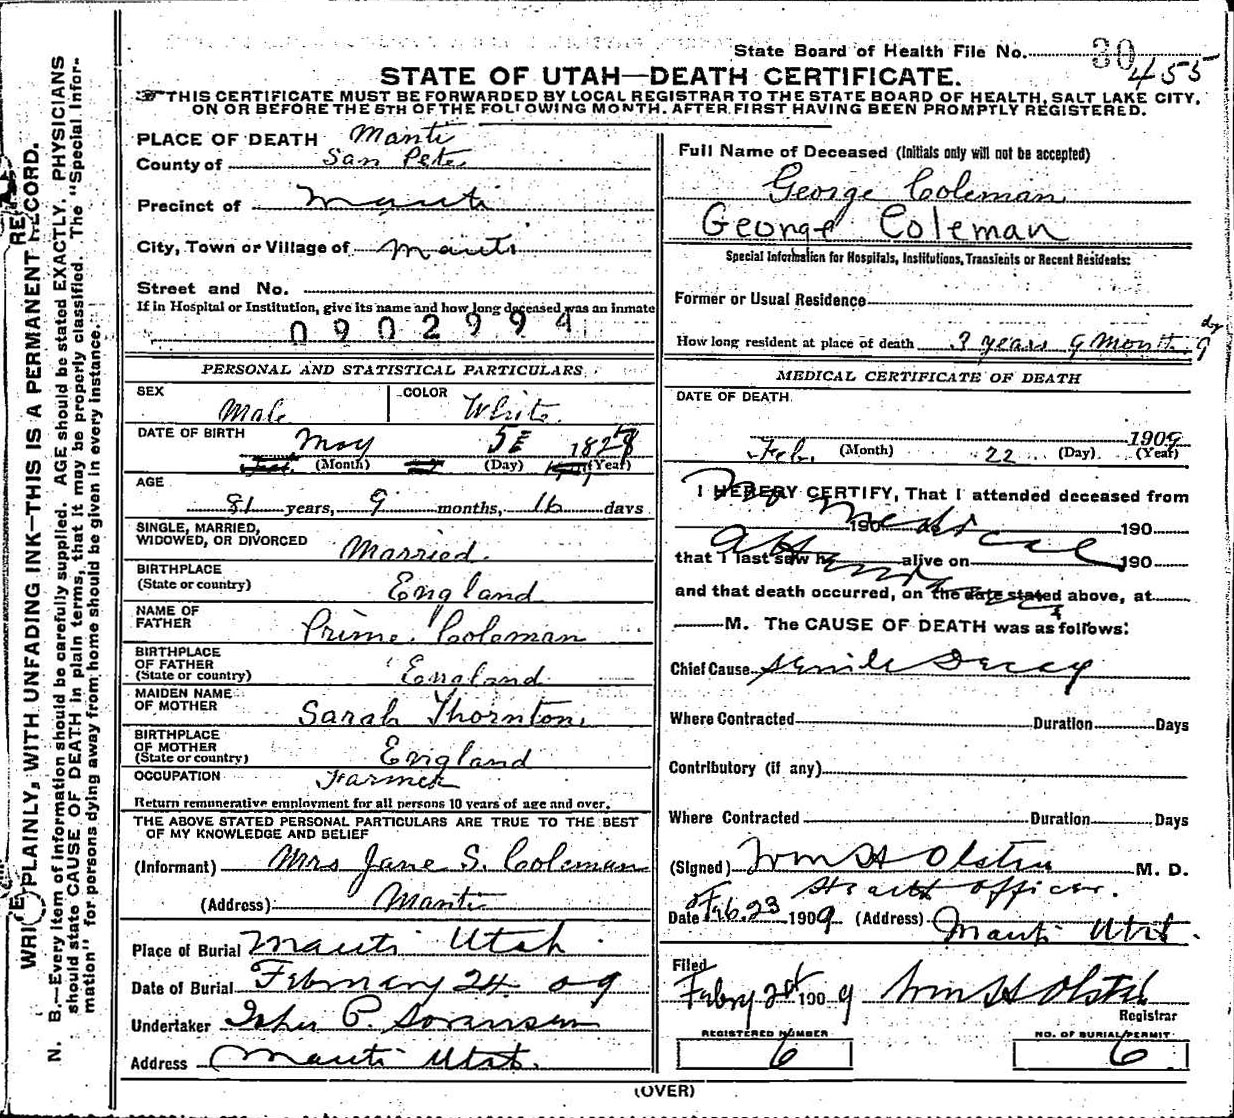 State Board of Health File No. 30 455
STATE OF UTAH—DEATH CERTIFICATE.
THIS CERTIFICATE MUST BE FORWARDED BY LOCAL REGISTRAR TO THE STATE BOARD OF HEALTH, SALT LAKE CITY,
ON OR BEFORE THE 5TH OF THE FOLLOWING MONTH, AFTER FIRST HAVING BEEN PROMPTLY REGISTERED.
WRITE PLAINLY, WITH UNFADING INK—THIS IS A PERMANENT RECORD.
N. B.—Every item of information should be carefully supplied. AGE should be stated EXACTLY. PHYSICIANS
should state CAUSE OF DEATH in plain terms, that it may be properly classified. The "Special Infor-
mation" for persons dying away from home should be given in every instance.
PLACE OF DEATH Manti
County of San Pete
Precinct of Manti
City, Town or Village of Manti
Street and No.
If in Hospital or Institution, give its name and how long deceased was an inmate
0902994
PERSONAL AND STATISTICAL PARTICULARS
SEX Male
COLOR White
DATE OF BIRTH May 5 182
(Month) (Day) (Year)
AGE
81 years, 9 months, 16 days
SINGLE, MARRIED,
WIDOWED, OR DIVORCED Married
BIRTHPLACE
(State or country) England
NAME OF
FATHER Prime Coleman
BIRTHPLACE
OF FATHER
(State or country) England
MAIDEN NAME
OF MOTHER Sarah Thornton
BIRTHPLACE
OF MOTHER
(State or country) England
OCCUPATION Farmer
Return remunerative employment for all persons 10 years of age and over.
THE ABOVE STATED PERSONAL PARTICULARS ARE TRUE TO THE BEST
OF MY KNOWLEDGE AND BELIEF
(Informant) Mrs Jane S. Coleman
(Address) Manti
Place of Burial Manti Utah
Date of Burial February 24 09
Undertaker P. Sorensen
Address Manti Utah.
Full Name of Deceased (Initials only will not be accepted)
George Coleman
George Coleman
Special Information for Hospitals, Institutions, Transients or Recent Residents:
Former or Usual Residence
How long resident at place of death 3 years 9 Month 9 dy
MEDICAL CERTIFICATE OF DEATH
DATE OF DEATH
Feb. (Month) 22 (Day) 1909 (Year)
I HEREBY CERTIFY, That I attended deceased from
No Medical
190 to 190
Attendance
that I last saw h alive on 190
and that death occurred, on the date stated above, at
M. The CAUSE OF DEATH was as follows:
Chief Cause Senile Decay
Where Contracted Duration Days
Contributory (if any)
Where Contracted Duration Days
(Signed) Wm H Olsten M. D.
Health officer.
Date Feb. 23 1909 (Address) Manti Utah.
Filed
Febry 1909 Wm H Olsten
Registrar
REGISTERED NUMBER
6
NO. OF BURIAL PERMIT
6
(OVER)